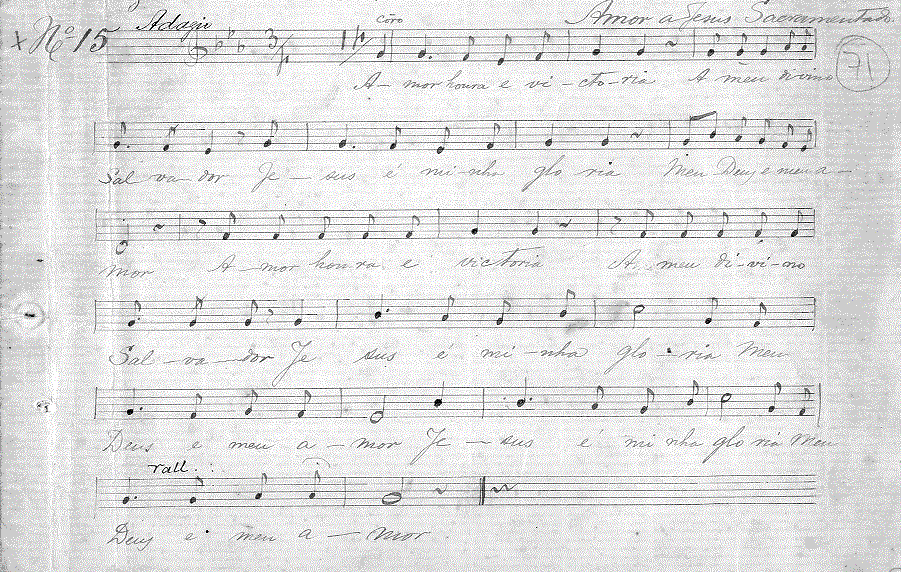 Coro Amor a Jesus Sacramentado.
x Nº 15 Adagio 3/4 71
A- mor houra e vi-cto-ria A meu divino
Sal va-dor Je-sus é mi-nha glo ria Meu Deus e meu a-
mor A-mor houra e victoria A meu di-vi-no
Sal-va-dor Je sus é mi-nha glo-ria Meu
Deus e meu a-mor Je-sus é mi nha glo ria Meu
rall.
Deus e meu a-mor.